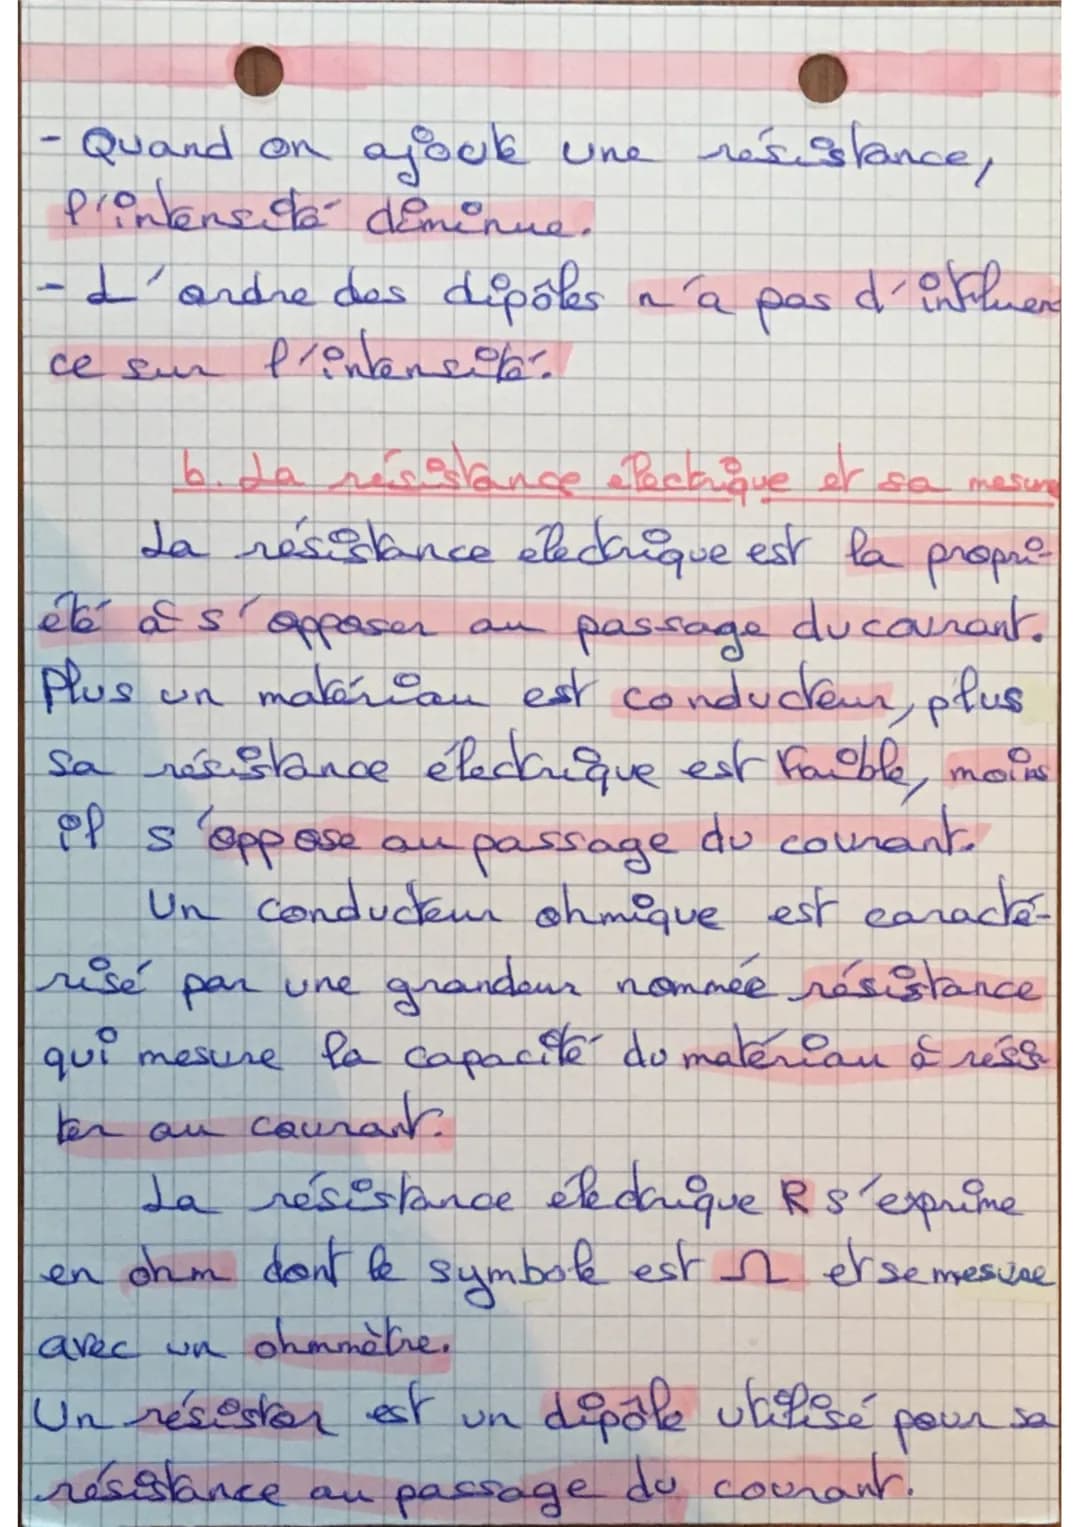 - Quand on ajoute une résistance,
l'intensité diminue.
- L'ordre des dipôles n'a pas d'influen
ce sur l'intensité.
b. La résistance électrique et sa mesure
La résistance électrique est la propri-
été à s'opposer au passage du courant.
Plus un matériau est conducteur, plus
sa résistance électrique est faible, moins
il s'oppose au passage du courant.
Un conducteur ohmique est caracté-
risé par une grandeur nommée résistance
qui mesure la capacité du matériau à résis
ter au courant.
La résistance électrique R s'exprime
en ohm dont le symbole est Ω et se mesure
avec un ohmmètre.
Un résistor est un dipôle utilisé pour sa
résistance au passage du courant.